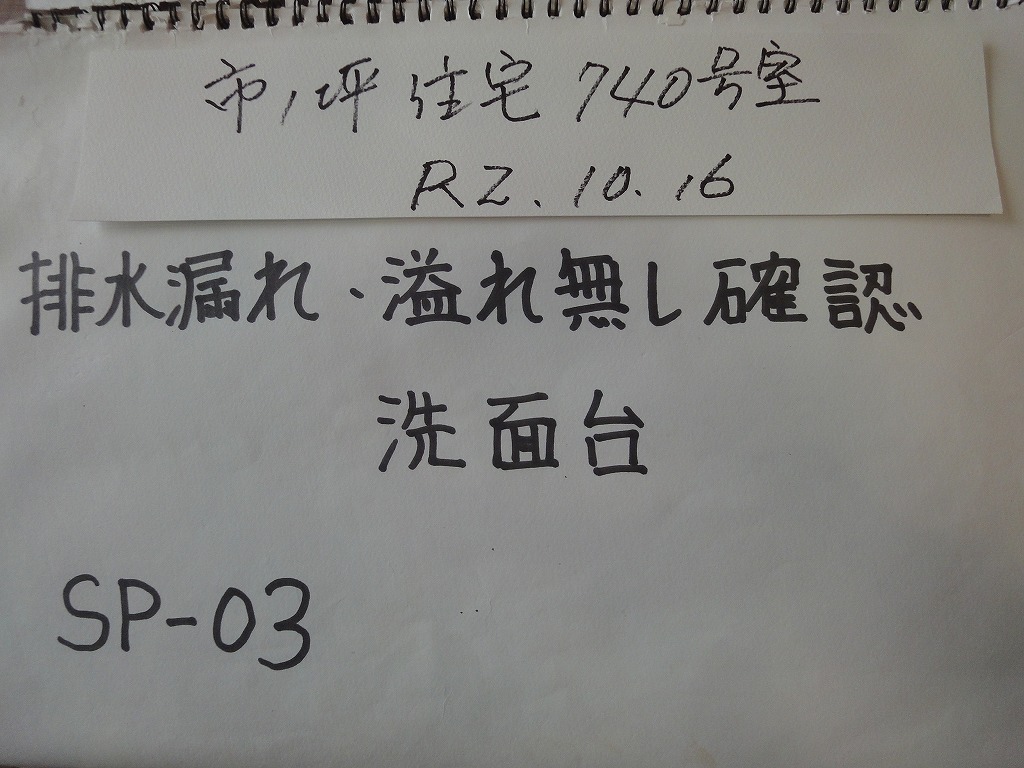 市ノ坪住宅 740号室
R2.10.16
排水漏れ・溢れ無し確認
洗面台
SP-03